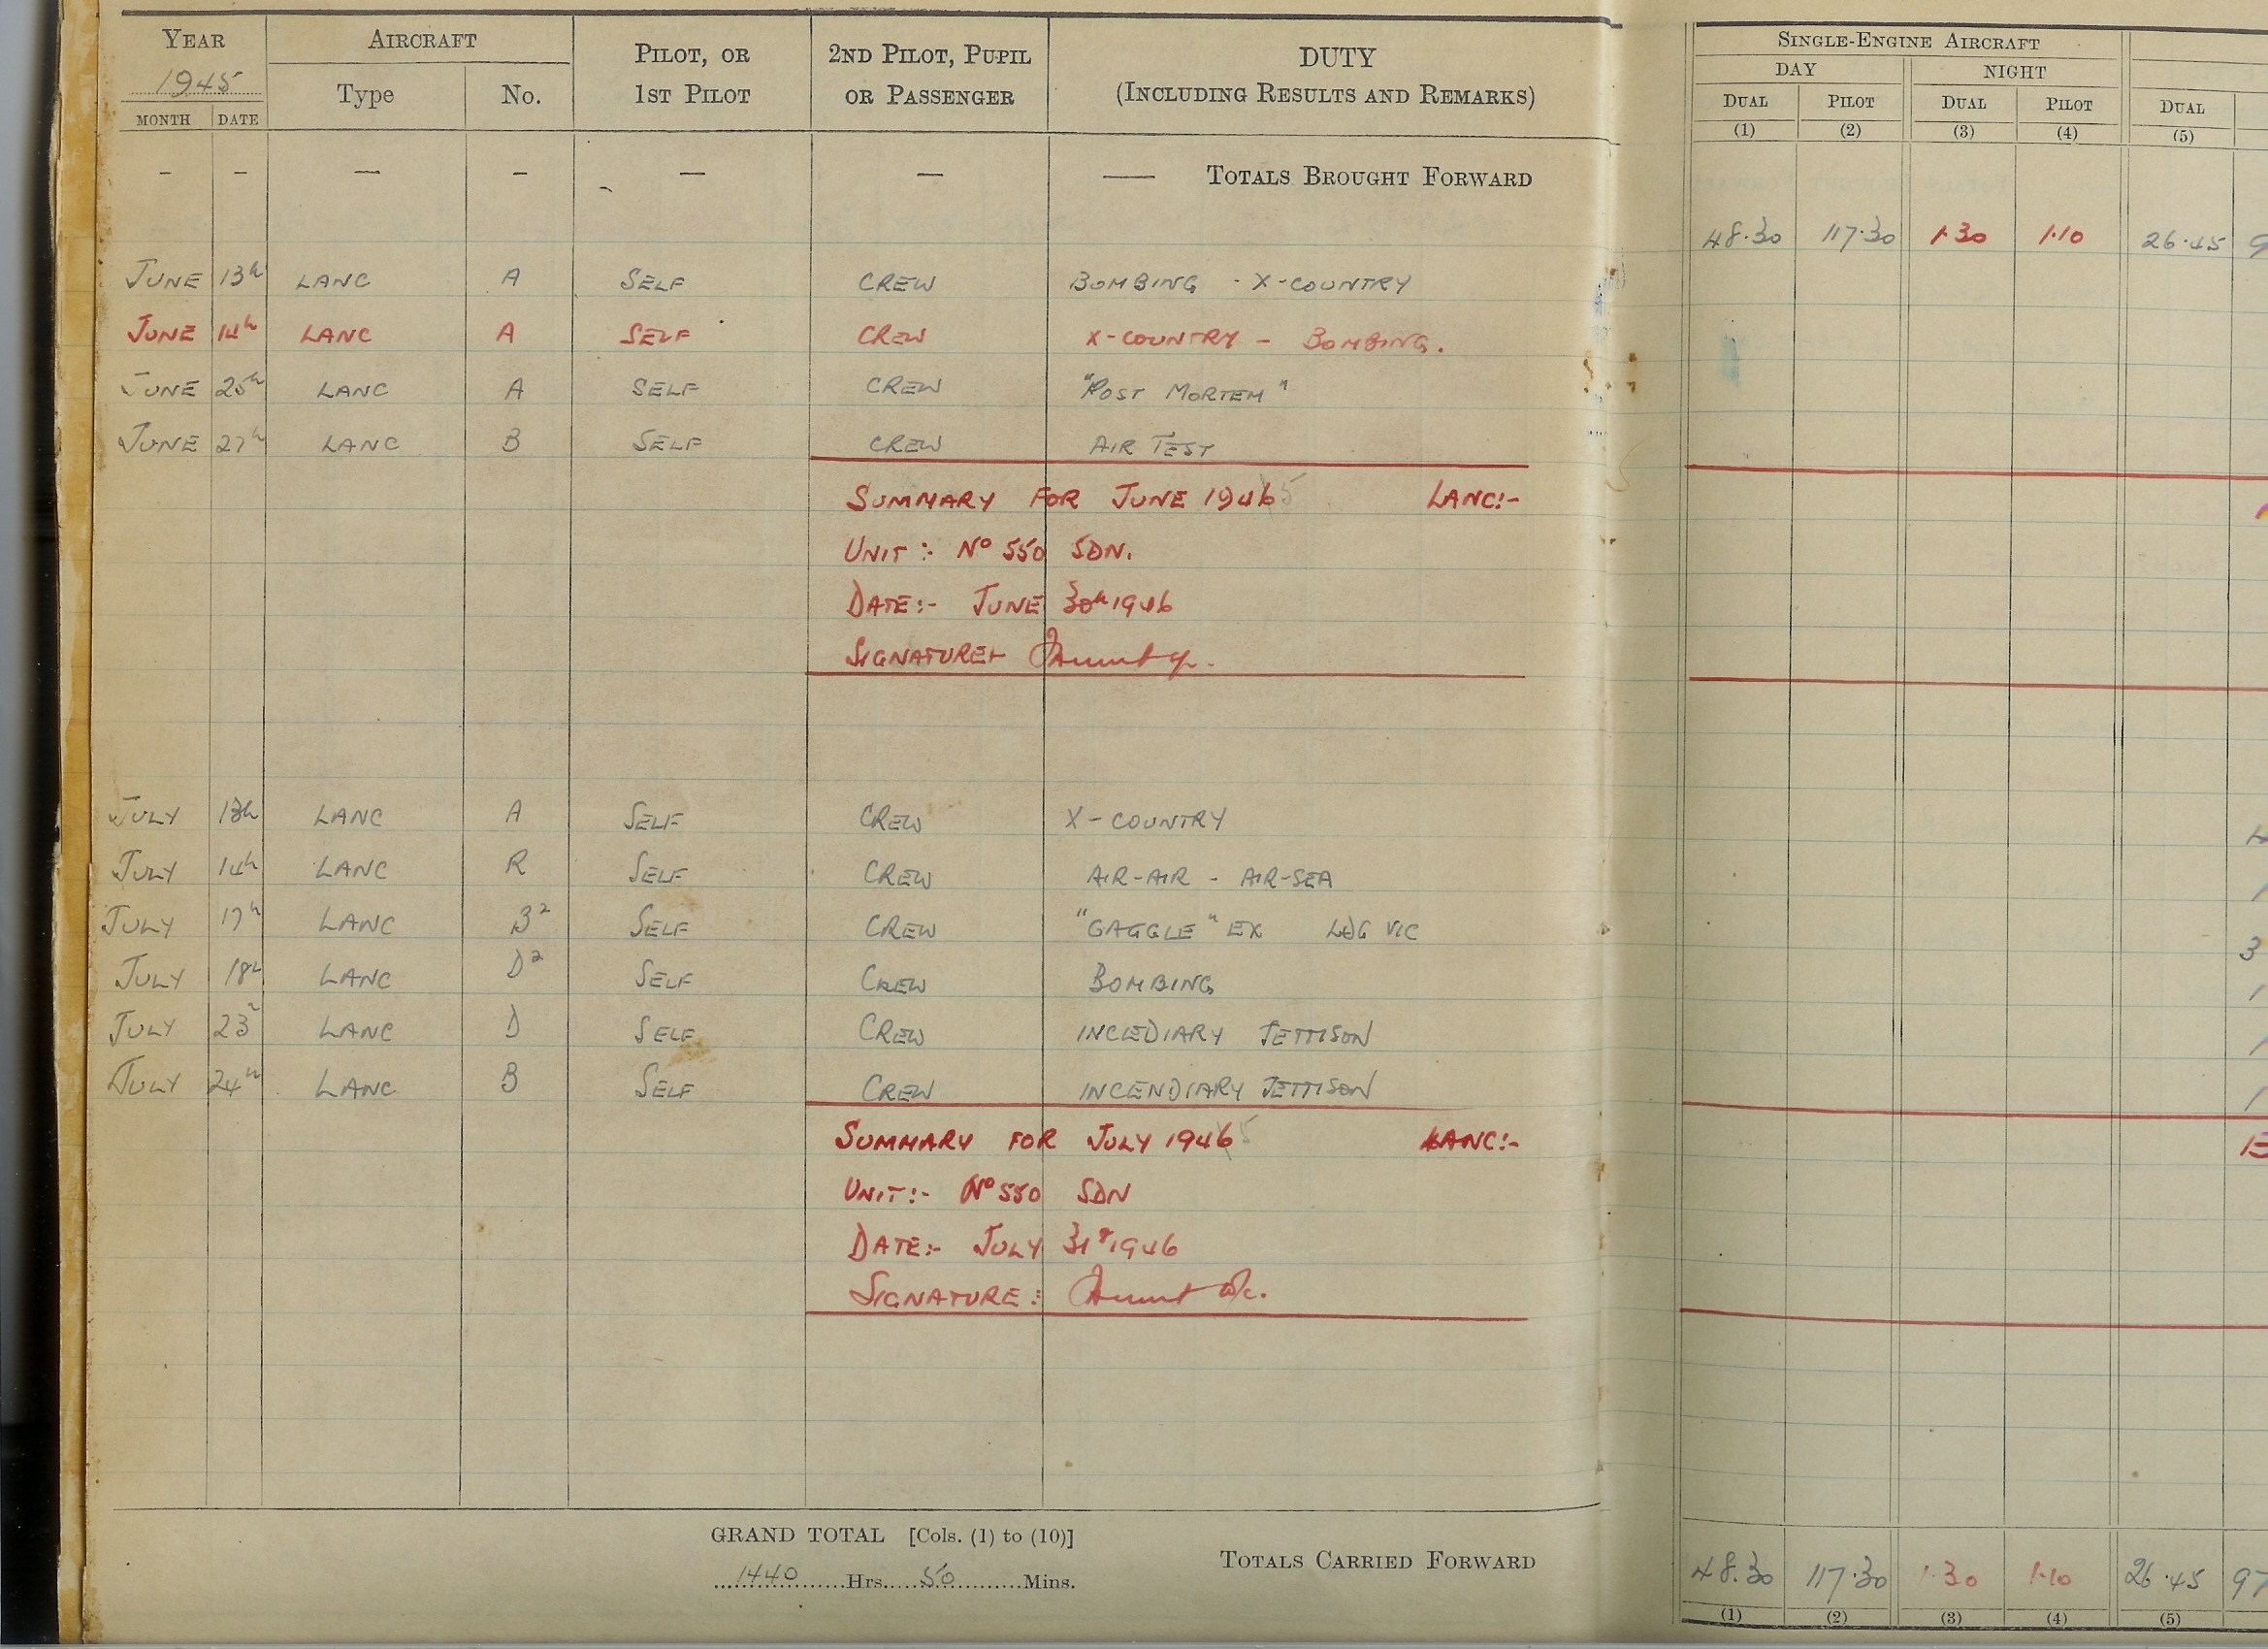 YEAR AIRCRAFT PILOT, OR 2ND PILOT, PUPIL DUTY SINGLE-ENGINE AIRCRAFT
1945 Type No. 1ST PILOT OR PASSENGER (INCLUDING RESULTS AND REMARKS) DAY NIGHT
MONTH DATE DUAL PILOT DUAL PILOT DUAL
(1) (2) (3) (4) (5)
- - — - — — — TOTALS BROUGHT FORWARD
48.30 117.30 1.30 1.10 26.45 9
JUNE 13th LANC A SELF CREW BOMBING - X-COUNTRY
JUNE 14th LANC A SELF CREW X-COUNTRY - BOMBING.
JUNE 25th LANC A SELF CREW "POST MORTEM"
JUNE 27th LANC B SELF CREW AIR TEST
SUMMARY FOR JUNE 1946 5 LANC:-
UNIT :- No 550 SDN.
DATE:- JUNE 30th 1946
SIGNATURE:-
JULY 13th LANC A SELF CREW X-COUNTRY
JULY 14th LANC R SELF CREW AIR-AIR - AIR-SEA
JULY 17th LANC B2 SELF CREW "GAGGLE" EX LDG VIC
JULY 18th LANC D2 SELF CREW BOMBING
JULY 23 LANC D SELF CREW INCEDIARY JETTISON
JULY 24th LANC B SELF CREW INCENDIARY JETTISON
SUMMARY FOR JULY 1946 5 LANC:-
UNIT:- No 550 SDN
DATE:- JULY 31st 1946
SIGNATURE:
GRAND TOTAL [Cols. (1) to (10)]
1440 Hrs. 50 Mins. TOTALS CARRIED FORWARD
48.30 117.30 1.30 1.10 26.45 97
(1) (2) (3) (4) (5)